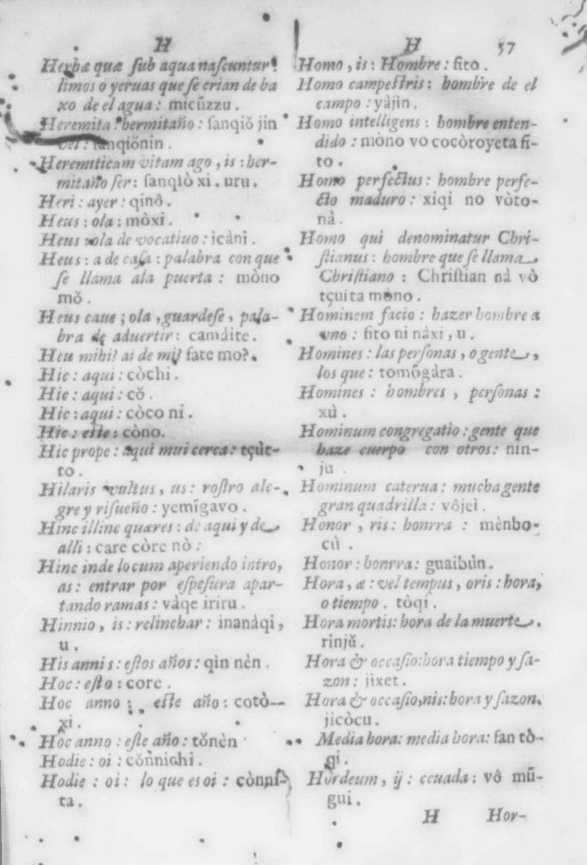 H
Herbæ quæ sub aqua nascuntur:
limos o yeruas que se crian de ba
xo de el agua: micŭzzu.
Heremita: hermitaño: sanqiǒ jin
vel: sanqiŏnin.
Heremiticam vitam ago, is: her-
mitaño ser: sanqiò xi. uru.
Heri: ayer: qinô.
Heus: ola: môxi.
Heus: ola de vocatiuo: icàni.
Heus: a de casa: palabra con que
se llama ala puerta: mòno
mŏ.
Heus caue; ola, guardese, pala-
bra de aduertir: camàite.
Heu mihi! ai de mi! sate mo?
Hic: aqui: còchi.
Hic: aqui: cŏ.
Hic: aqui: còco ni.
Hic: este: còno.
Hic prope: aqui mui cerca: tçùt-
to.
Hilaris vultus, us: rostro ale-
gre y risueño: yemîgavo.
Hinc illinc quæres: de aqui y de
alli: care còre nò:
Hinc inde locum aperiendo intro,
as: entrar por espesura apar-
tando ramas: vàqe iriru.
Hinnio, is: relinchar: inanàqi,
u.
His annis: estos años: qìn nèn.
Hoc: esto: core.
Hoc anno: este año: cotò-
xi.
Hoc anno: este año: tŏnèn
Hodie: oi: cŏnnichi.
Hodie: oi: lo que es oi: cònnĭ-
ta.
H 57
Homo, is: Hombre: fito.
Homo campestris: hombre de el
campo: yàjin.
Homo intelligens: hombre enten-
dido: mòno vo cocòroyeta fi-
to.
Homo perfectus: hombre perfe-
cto maduro: xiqi no vòto-
nà.
Homo qui denominatur Chri-
stianus: hombre que se llama
Christiano: Christian nà vò
tçuita mòno.
Hominem facio: hazer hombre a
uno: fito ni nàxi, u.
Homines: las personas, o gente,
los que: tomŏgàra.
Homines: hombres, personas:
xù.
Hominum congregatio: gente que
haze cuerpo con otros: nin-
ju.
Hominum caterua: mucha gente
gran quadrilla: vôjei.
Honor, ris: honrra: mènbo-
cù.
Honor: honrra: guaibùn.
Hora, æ: vel tempus, oris: hora,
o tiempo. tòqi.
Hora mortis: hora de la muerte.
rinjŭ.
Hora & occasio: hora tiempo y sa-
zon: jixet.
Hora & occasio, nis: hora y sazon.
jicòcu.
Media hora: media hora: fan tò-
qi.
Hordeum, ij: ceuada: vô mŭ-
gui.
H Hor-